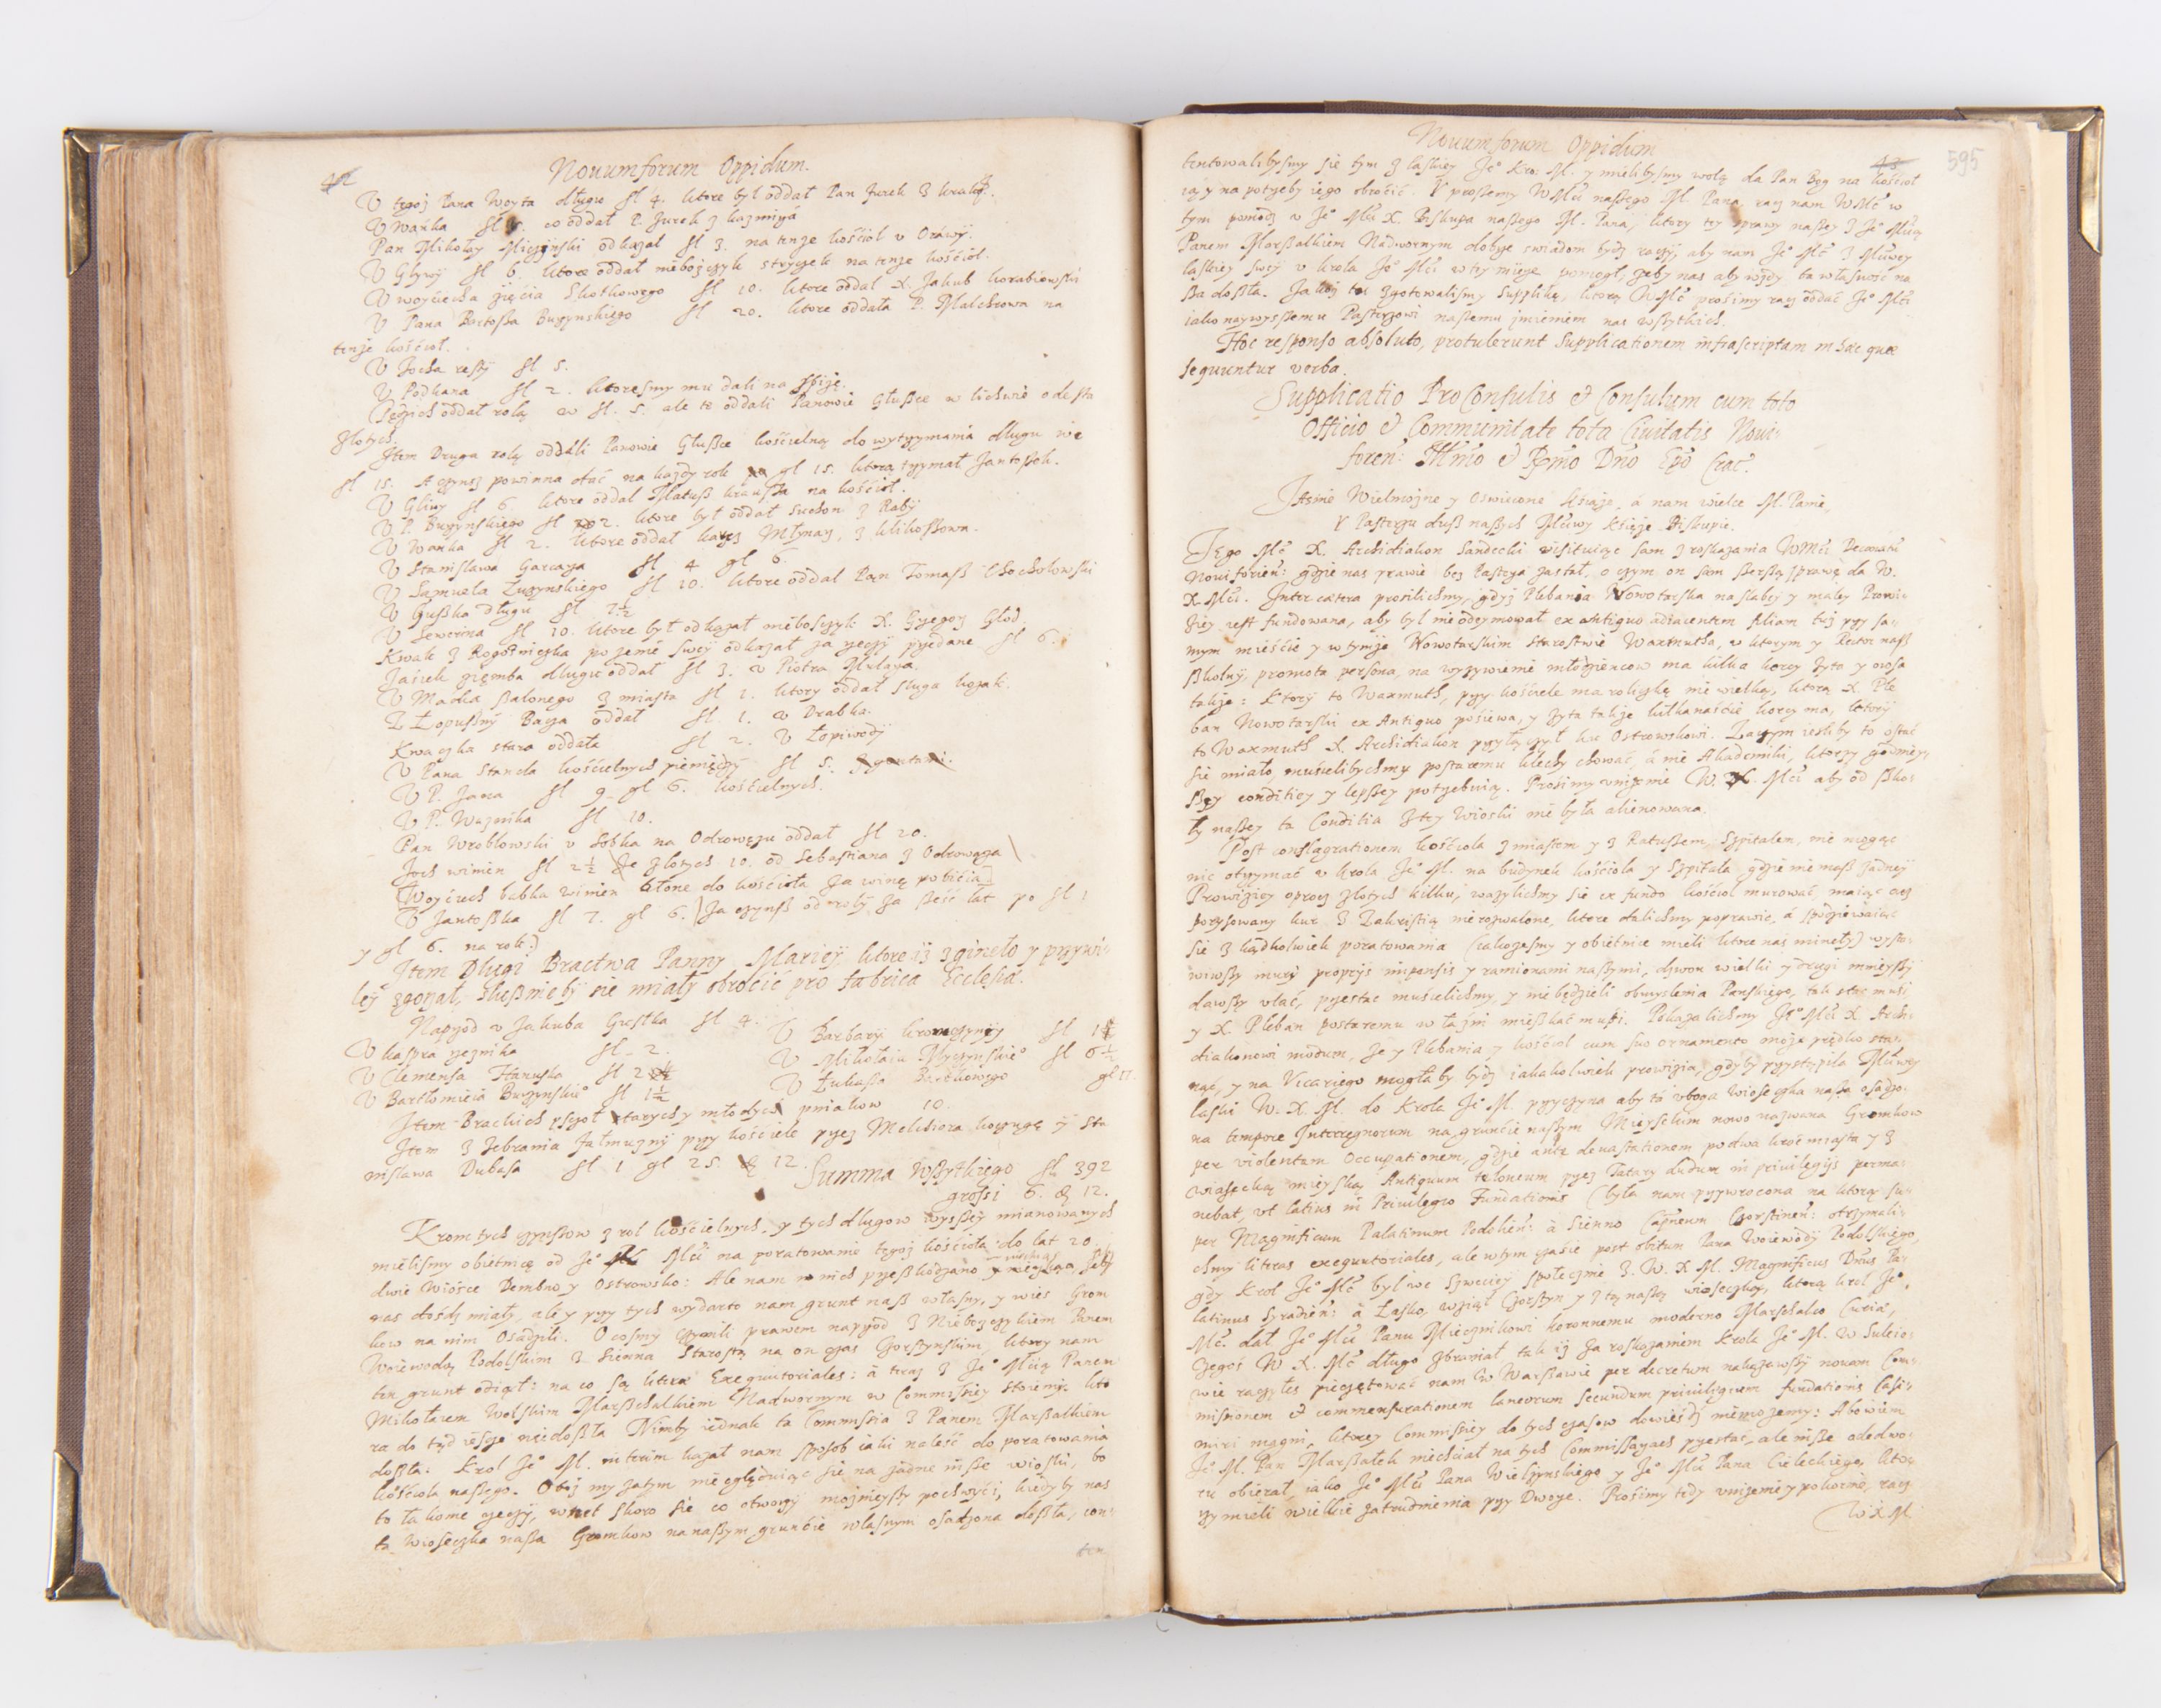 42
Nouumforum Oppidum.
V tegoj Pana Woyta długu fl 4. ktore był oddał Pan Jurek z
V Wańka fl co oddał P. Jurek z kazmirza
Pan Mikołay Miczinski odkazał fl 3. na tenze kośćioł v Orawy.
V Gływy fl 6. ktore oddał niebozczyk stryczek na tenze kośćioł.
V woyćiecha zięćia Skotkowego fl 10. ktore oddał X. Jakub korabiowski
V Pana Bartosza Buczynskiego fl 20. ktore oddała P. Malchrowa na
tenze kośćioł.
V Jocha reszty fl 5.
V Podkana fl 2. ktoresmy mu dali na
oddał rolą w fl. 5. ale te oddali Panowie Głuszce w lichwie od sta
złotych.
Item Druga rolą oddali Panowie Głuszce kośćielną do wytrzymania długu we
fl 15. A czynsz powinna dać na kazdy rok gl 15. ktorą trzymał Jantoszek.
V Gliwy fl 6. ktore oddał Matusz krauszka na kośćioł.
V P. Buczynskiego fl 2. ktore był oddał Suchon z Raby
V Wańka fl 2. ktore oddał Młynarz, z klikoszowa.
V Stanisława Garcarza fl 4 gl 6.
V Samuela Łuczynskiego fl 10. ktore oddał Pan Tomasz Chochołowski
V Guszka długu fl 7½
V Sewerina fl 10. ktore był odkazał nieboszczyk X. Grzegorz Głod.
Kwak z Rogoźniczka po zenie swey odkazał za rzeczy przedane fl 6.
Jasiek zięmba długu oddał fl 3. v Piotra Mularza.
V Maćka szalonego z miasta fl 1. ktory oddał sługa kozak.
Z Łopuszny Bacza oddał fl. 1. v Drabka.
Kwaczka stara oddała fl 2. V Łopiwody
V Pana Stancla kośćielnych pieniędzy fl 5.
V P. Jana fl 9 gl 6. kośćielnych.
V P. Waznika fl 10.
Pan Wroblowski v Sobka na Odrowązu oddał fl 20.
Joch winien fl 2½ złotych 10. od Sebastiana z Odrowąza
Woyćiech babka winien do kośćioła za winę pobićia
V Jantoszka fl 7. gl 6. za czynsz od roly za sześć lat po fl 1
y gl 6. na rok.
Item Długi Bractwa Panny Mariey ktore iz zgineło y przywi-
ley zgorzał, słusznieby sie miały obroćić pro fabrica Ecclesiæ.
Naprzod v Jakuba Gustka fl 4. V Barbary kromczyney fl 1
V kaspra rzeznika fl 2. V Mikołaia Myczynskie° fl 6½
V Clemensa Hanuska fl 2 V Łukasza Bartkowego gl 17
V Bartłomieia Buczynskie° fl 1½
Item Brackich pszoł starych y młodych pniakow 10.
Item z zebrania Jałmuzny przy kośćiele przez Melchiora y Sta
nisława Dubasa fl 1 gl 25. 12. Summa wszytkiego fl 392
grossi 6. 12.
Krom tych czynszow z rol kośćielnych, y tych długow wysszey mianowanych
mielismy obietnicę od Je° Mći na poratowanie tegoj kośćioła do lat 20
dwie wiosce Dembno y Ostrowsko: Ale nam w nich przeszkodzano
nas dość miały, ale y przy tych wydarto nam grunt nasz własny, y wies Grom
kow na nim osadzili. O cosmy czynili prawem naprzod z Niebozczykiem Panem
Woiewodą Podolskim z Sienna Starostą na on czas Czorsztynskim, ktory nam
ten grunt odiął: na co są literæ Exequutoriales: a teraz z Je° Mćią Panem
Mikołaiem Wolskim Marschalkiem Nadwornym w Commissiey stoiemy: kto
ra do tąd iescze niedoszła Nimby iednak ta Commissia z Panem Marszałkiem
doszła: krol Je° M. interim kazał nam sposob iaki naleść do poratowania
kośćioła naszego. Otoz my zatym nie oględuiąc sie na zadne insze wioski, bo
to łakome rzeczy, wnet skoro sie co otworzy mozniejszy pochwyći, kiedy by nas
ta wioseczka nasza Gromkow na naszym grunćie własnym osadzona doszła, con-
ten
Nouumforum Oppidum
43 595
tentowalibysmy sie tym z laskiey Je° Kro. M. y mielibysmy wolą da Pan Bog na kośćioł
iąż y na potrzeby iego obroćić. Y prosiemy WMći naszego M. Pana racz nam WMć w
tym pomodz v Je° Mći X. Biskupa naszego M. Pana, ktory tey sprawy naszey z Je° Mćią
Panem Marszałkiem Nadwornym dobrze swiadom bydz raczy, aby nam Je° Mć z Mćiwey
laskiey swey v krola Je° Mći w tey mierze pomogł, zeby nas aby wzdy ta własność na
sza doszła. Jakoz tu zgotowalismy Supplikę, ktorą WMć prosimy racz oddać Je° Mći
iako naywysszemu Pasterzowi naszemu jmieniem nas wszytkich.
Hoc responso absoluto, protulerunt Supplicationem infrascriptam in hæc quæ
sequuntur verba.
Supplicatio ProConsulis et Consulum cum toto
Officio et Communitate tota Ciuitatis Noui-
foren: Illmo et Rmo Dno Epo Crac.
Jasnie Wielmozne y Oswiecone Xiąze, á nam wielce M. Panie,
Y Pasterzu dusz naszych Mćiwy Xięze Biskupie.
Jego Mć X. Archidiakon Sandecki visituiąc sam z roskazania WMći Decanatū
Nouiforien: gdzie nas prawie bez Pasterza zastał, o czym on sam szerszą sprawę da W.
X. Mći. Inter cætera prosilichmy, gdyz Plebania Nowotarska na słabey y małey Prowi-
ziey iest fundowana, aby był nie odeymował ex antiquo adiacentem filiam tuz przy sa-
mym mieśćie y w tymze Nowotarskim Starostwie Waxmutha, w ktorym y Rector nasz
szkolny, promota persona, na wyzywienie młodziencow ma kilka korcy zyta y owsa
takze: Ktory to Waxmuth, przy kośćiele ma roliczkę nie wielką, ktorą X. Ple
ban Nowotarski ex Antiquo pośiewa, y zyta takze kilkanaśćie korcy ma, ktory
to Waxmuth X. Archidiakon przyłączył ku Ostrowskowi. Zaczym iesliby to ostać
sie miało, muśielibychmy postaremu klechy chować, á nie Akademiki, ktorzy
szey conditiey y lepszey potrzebuią. Prośimy vnizenie W. X. Mći aby od szko-
ły naszey ta Conditia z tey Wioski nie była alienowana.
Post conflagrationem kośćioła z miastem y z Ratuszem, Szpitalem, nie mogąc
nic otrzymać v krola Je° M. na budynek kośćioła y Szpitala, gdzie nie masz zadney
Prowiziey oprocz złotych kilku, wazylichmy sie ex fundo kośćioł murować, maiąc
porysowany kur z Zakristią nierozwalone, ktore dalichmy poprawić, á spodziewaiąc
sie z kądkolwiek poratowania (iakozesmy y obietnice mieli ktore nas mineły) wysta-
wiwszy mury proprijs impensis y ramionami naszymi, dzwon wielki y drugi mnieyszy
dawszy vlać, przestać muśielichmy, y nie będzieli obmyslenia Panskiego, tak stać muśi
y X. Pleban postaremu w łaźni mieszkać muśi. Pokazalichmy Je° Mći X. Archi-
diakonowi modum, ze y Plebania y kośćioł cum suo ornamento moze prędko sta-
nąć, y na Vicariego mogłaby bydz iakakolwiek prowizia, gdyby przystąpiła Mćiwey
laski W. X. M. do krola Je° M. przyczyna aby tá vboga wioseczka nasza osadzo-
na tempore Interregnorum na grunćie naszym Mieyskim nowo nazwana Gromkow
per violentam Occupationem, gdzie ante deuastationem po dwa kroć miasta y z
wiaseczką mieyską Antiquum teloneum przez Tatary dudum in priuilegijs perma-
nebat, vt latius in Priuilegio Fundationis (była nam przywrocona na ktorą su-
per Magnificum Palatinum Podolien: á Sienno Capneum Czorstinen: otrzymali-
chmy literas exequutoriales, ale w tym czaśie post obitum Pana Woiewody Podolskiego,
gdy Krol Je° Mć był we Szweciey społecznie z W. X. M. Magnificus Dnus Pa-
latinus Syradien: à Lasko, wziął Czorsztyn y z tą naszą wioseczką, ktorą krol Je°
Mć. dał Je° Mći Panu Miecznikowi koronnemu moderno Marschalco Curiæ,
czegoś W. X. Mć długo zbraniał tak iz za roskazaniem krola Je° M. w Suleio-
wie raczyłes pieczętować nam w Warszawie per decretum nakazawszy nouam Com-
missionem et commensurationem laneorum secundum priuilegium fundationis Casi-
miri magni, ktorey Commissiey do tych czasow dowieść niemozemy: Abowiem
Je° M. Pan Marszałek niechćiał na tych Commissarzach przestać, ale insze ode dwo-
ru obierał, iako Je° Mći Pana Wielzynskiego y Je° Mći Pana Cieleckiego, ktoe
rzy mieli wielkie zatrudnienia przy Dworze. Prosimy tedy vnizenie y pokornie, racz
W X M